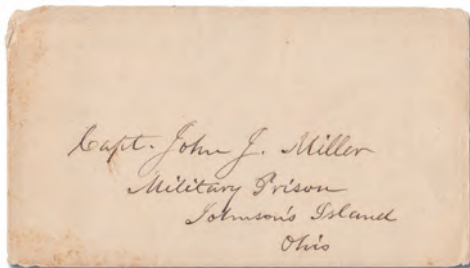 Capt. John J. Miller
Military Prison
Johnson's Island
Ohio